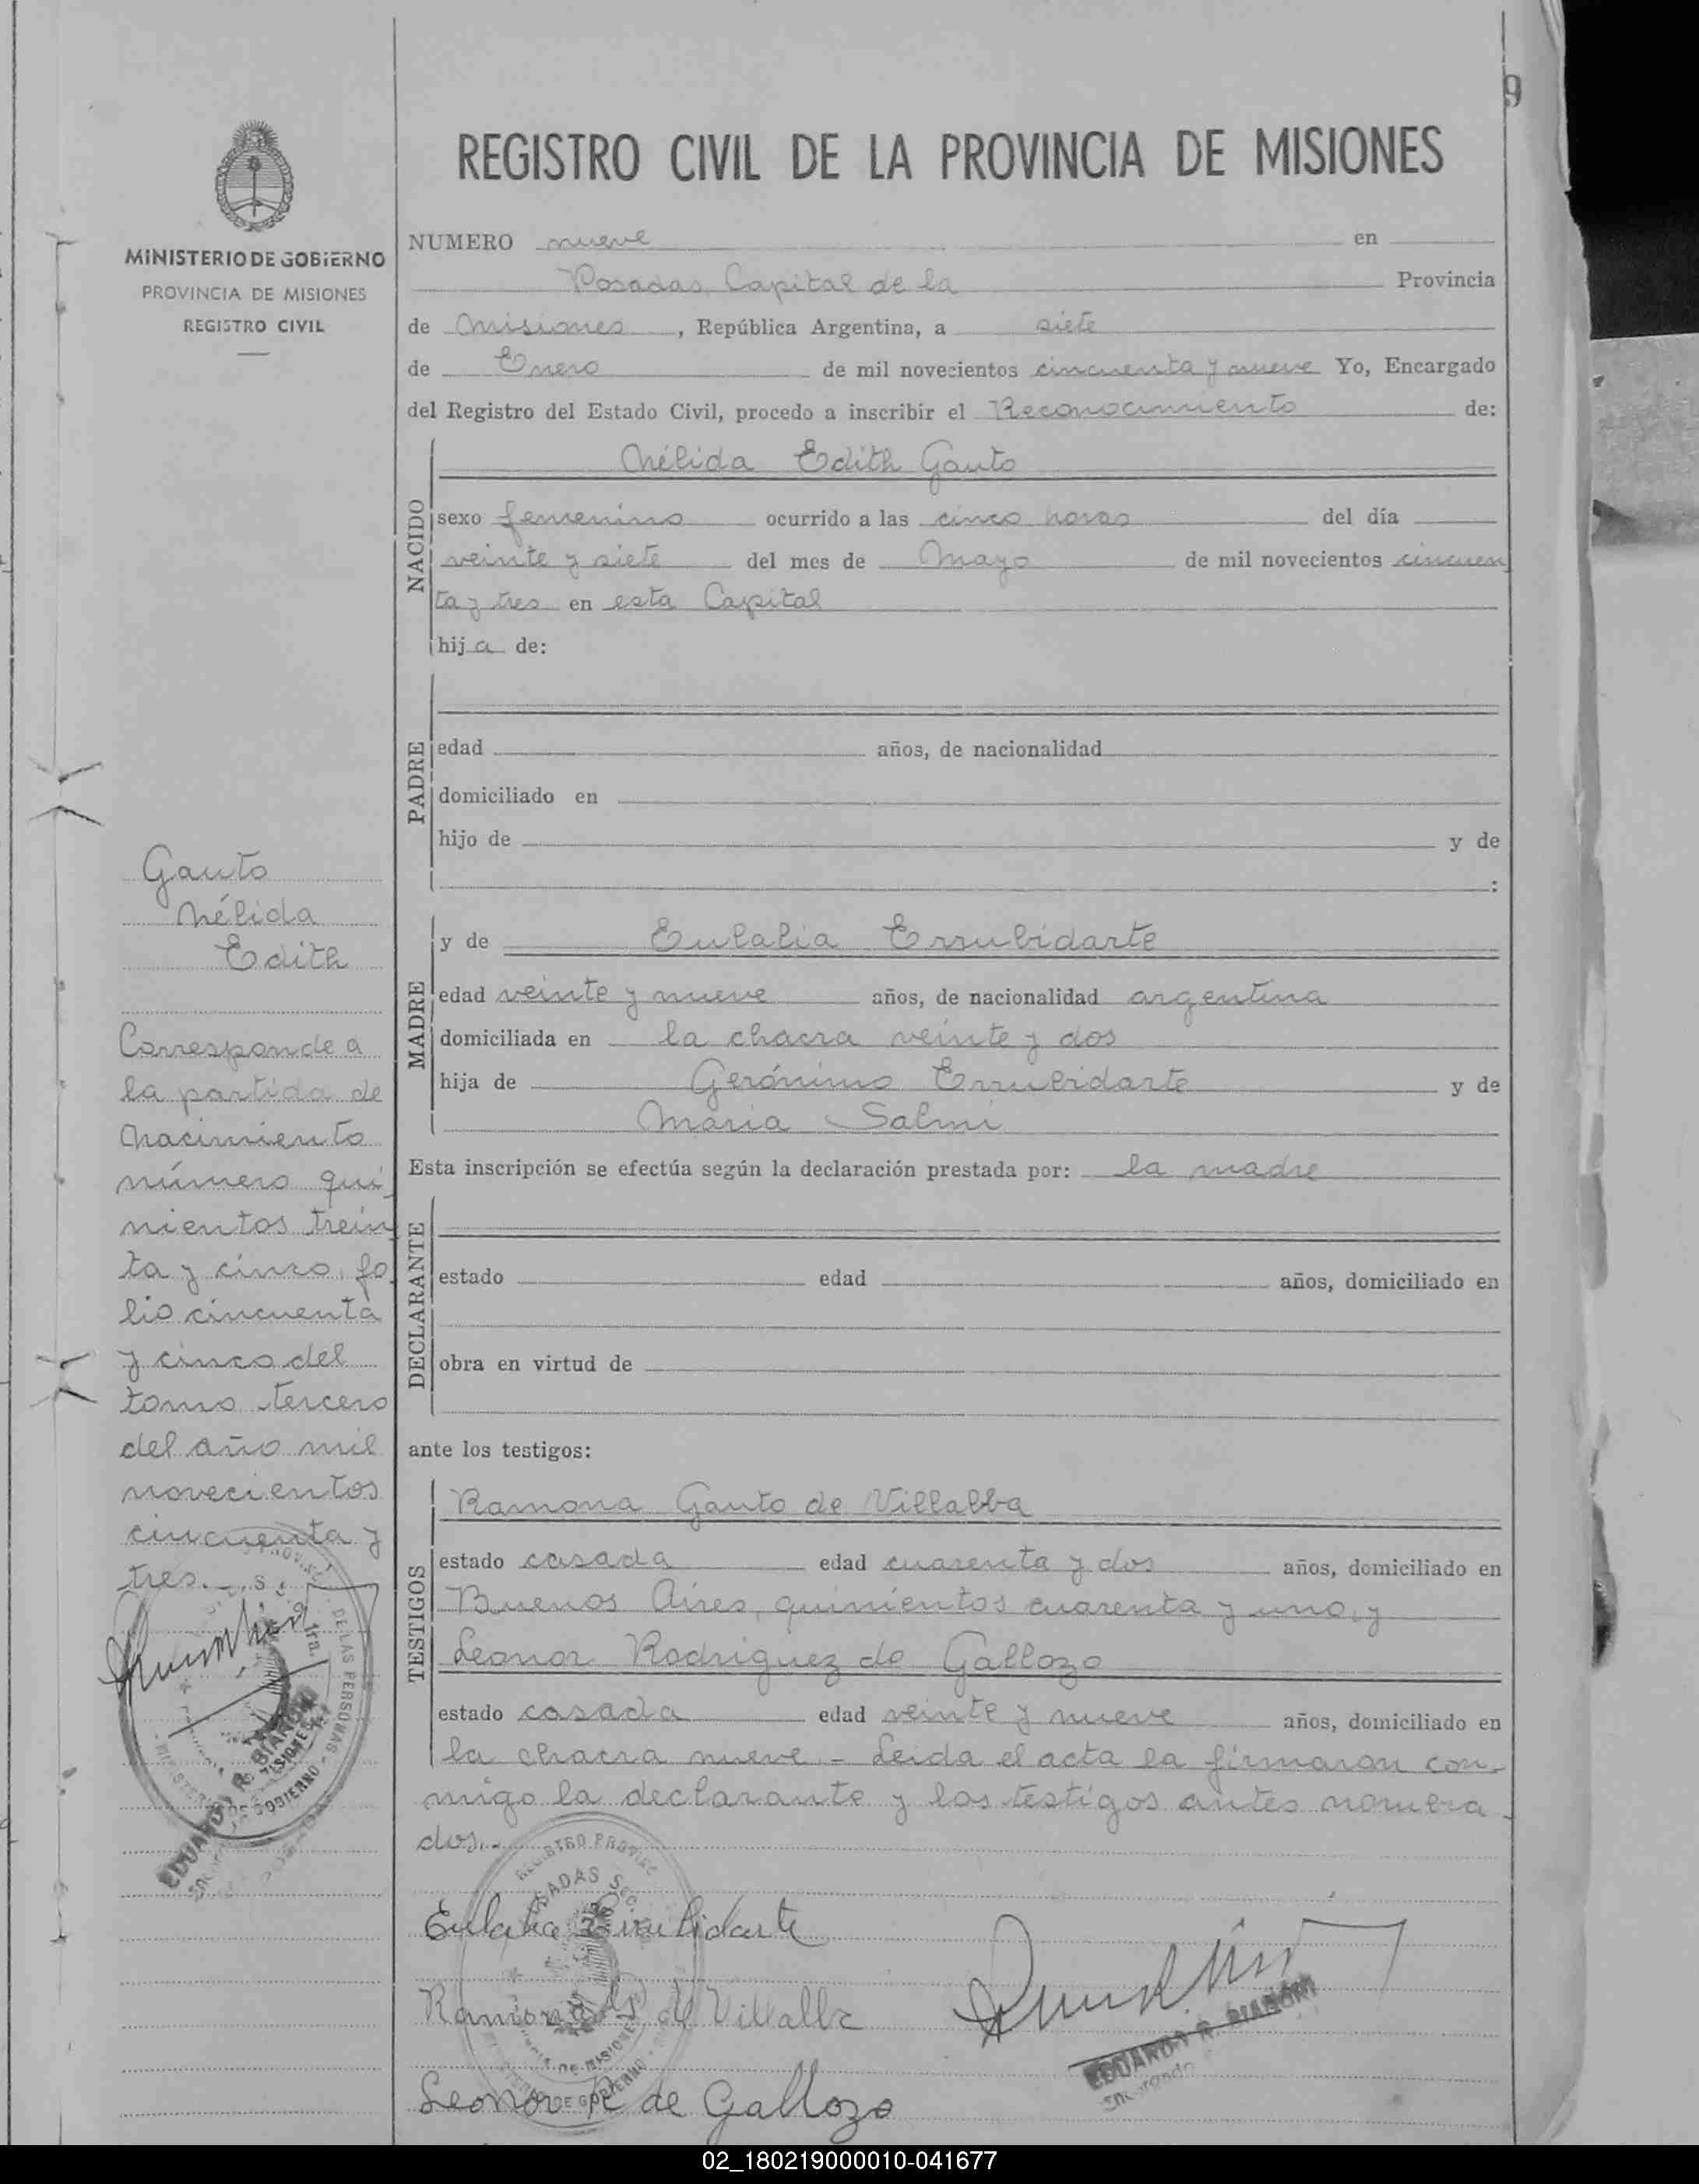 9
REGISTRO CIVIL DE LA PROVINCIA DE MISIONES
MINISTERIO DE GOBIERNO
PROVINCIA DE MISIONES
REGISTRO CIVIL
NUMERO nueve en
Posadas, Capital de la Provincia
de Misiones, República Argentina, a siete
de Enero de mil novecientos cincuenta y nueve Yo, Encargado
del Registro del Estado Civil, procedo a inscribir el Reconocimiento de:
NACIDO
Nélida Edith Gauto
sexo femenino ocurrido a las cinco horas del día
veinte y siete del mes de Mayo de mil novecientos cincuen
ta y tres en esta Capital
hija de:
PADRE
edad años, de nacionalidad
domiciliado en
hijo de y de
:
Gauto
Nélida
Edith
Corresponde a
la partida de
Nacimiento
número qui
nientos trein
ta y cinco, fo
lio cincuenta
y cinco del
tomo tercero
del año mil
novecientos
cincuenta y
tres.-
MADRE
y de Eulalia Errubidarte
edad veinte y nueve años, de nacionalidad argentina
domiciliada en la chacra veinte y dos
hija de Gerónimo Errubidarte y de
Maria Salmi
Esta inscripción se efectúa según la declaración prestada por: la madre
DECLARANTE
estado edad años, domiciliado en
obra en virtud de
ante los testigos:
TESTIGOS
Ramona Gauto de Villalba
estado casada edad cuarenta y dos años, domiciliado en
Buenos Aires, quinientos cuarenta y uno, y
Leonor Rodriguez de Gallozo
estado casada edad veinte y nueve años, domiciliado en
la chacra nueve - Leida el acta la firmaron con-
migo la declarante y los testigos antes nombra
dos.-
DE LAS PERSONAS
MINISTERIO DE GOBIERNO
EDUARDO R. BIANCHI
REGISTRO PROVINC
POSADAS SEC.
DE MISIONES
MINISTERIO DE GOBIERNO
Eulalia Errubidarte
Ramona G de Villalba
EDUARDO R. BIANCHI
Encargado
Leonor R de Gallozo
02_180219000010-041677